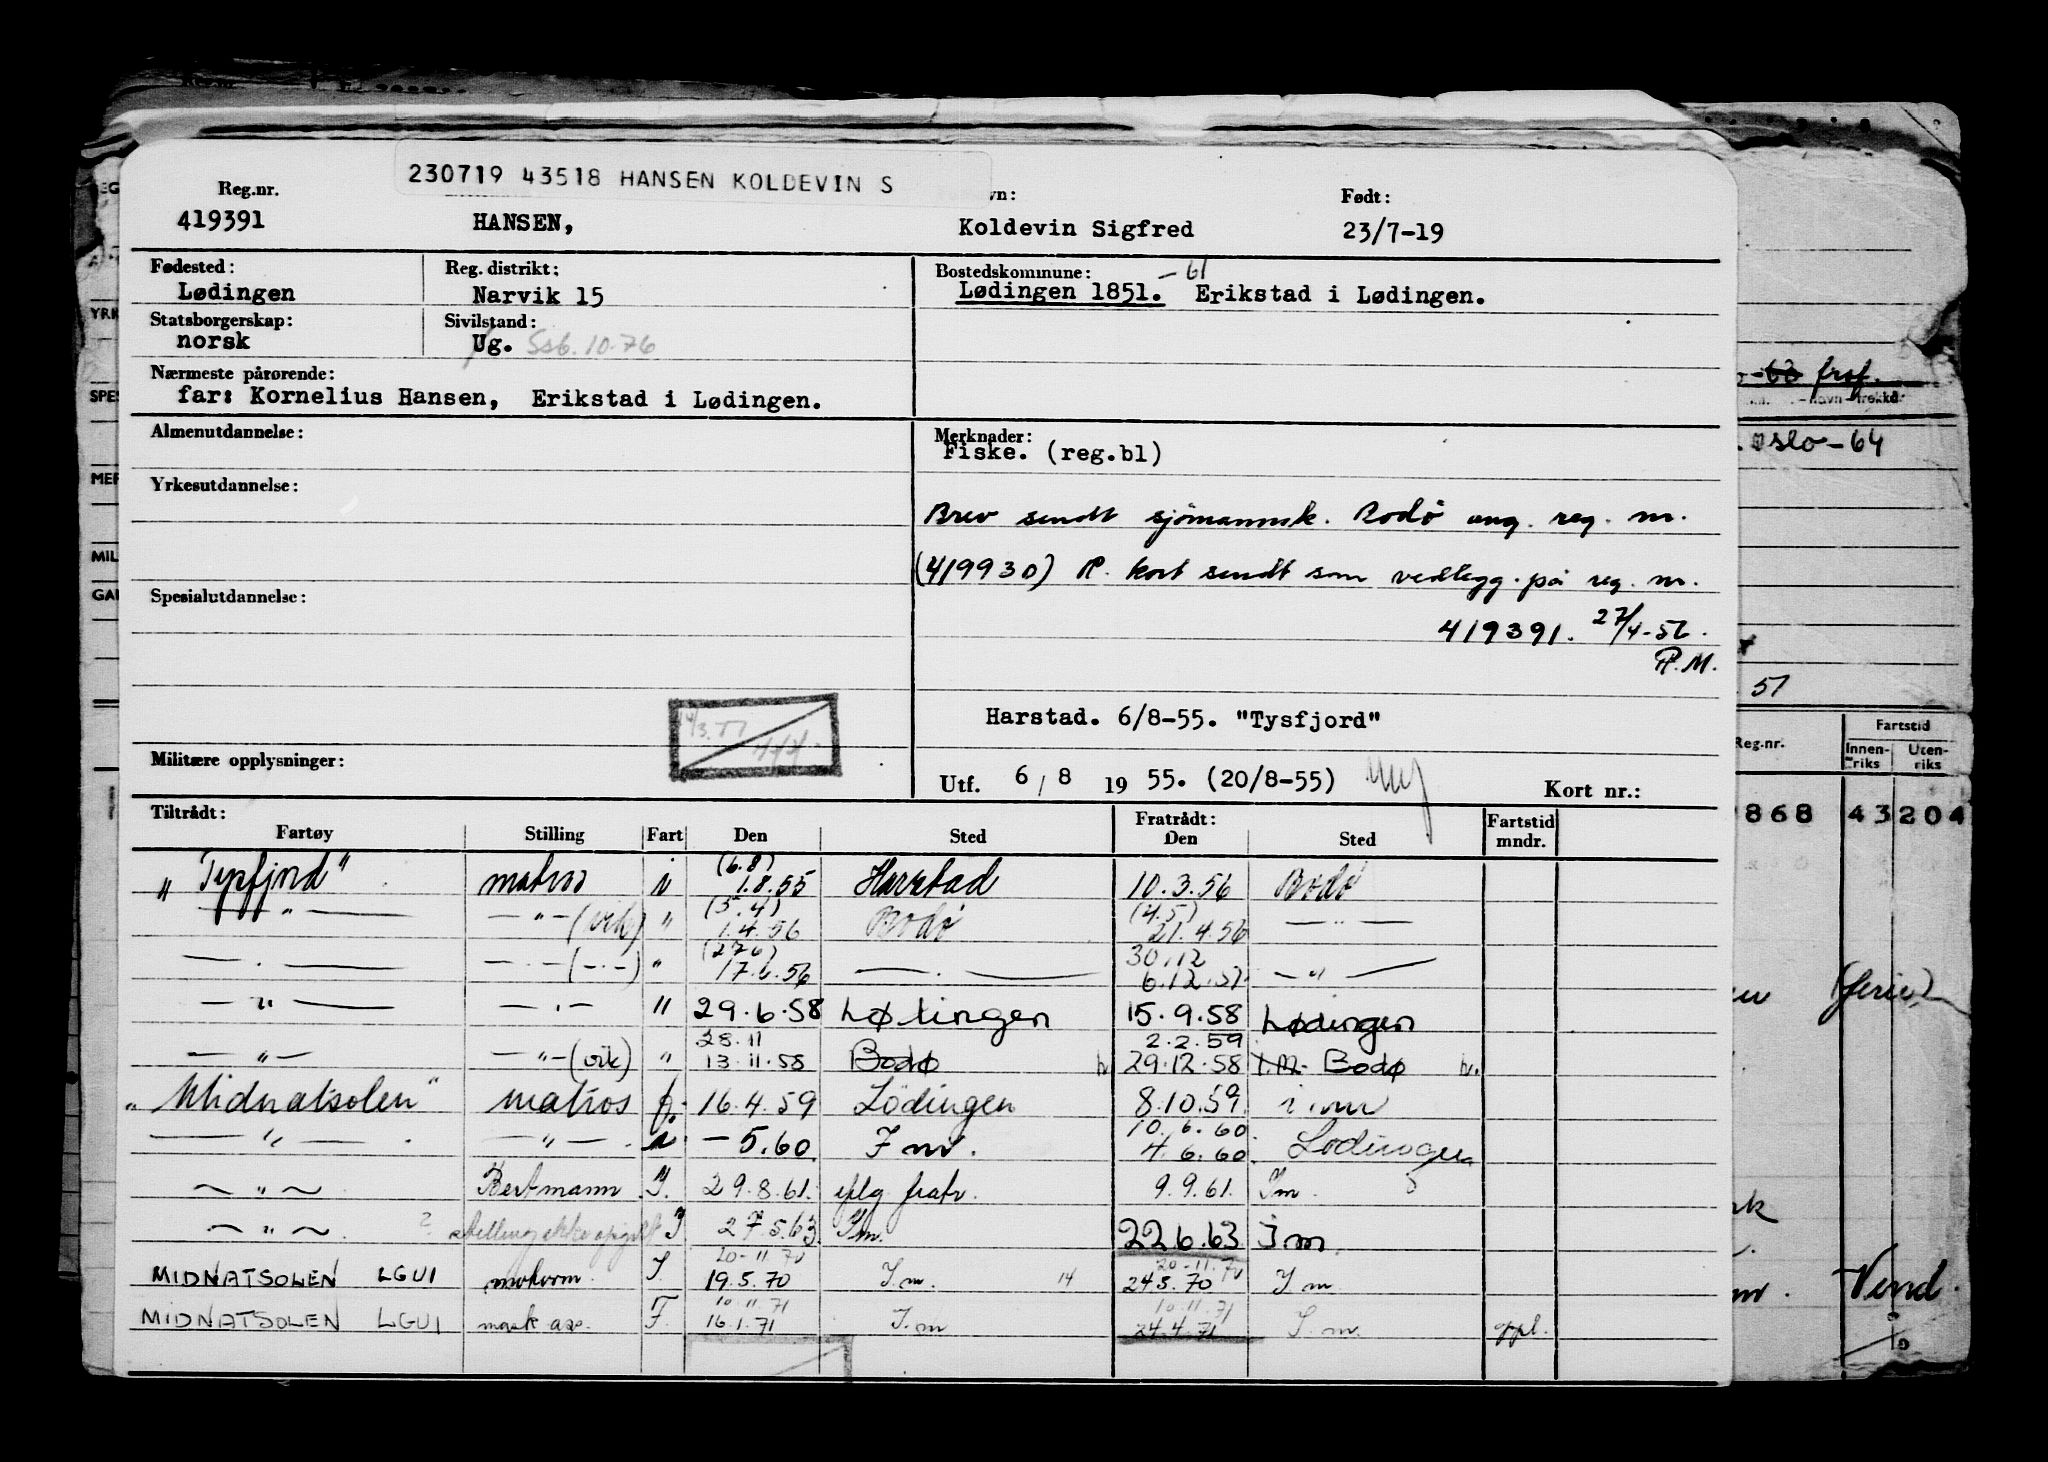 230719 43518 HANSEN KOLDEVIN S
Reg.nr. vn: Født:
419391 HANSEN, Koldevin Sigfred 23/7-19
Fødested: Reg. distrikt: Bostedskommune: -61
Lødingen Narvik 15 Lødingen 1851. Erikstad i Lødingen.
Statsborgerskap: Sivilstand:
norsk Ug. Ssb. 10.76
Nærmeste pårørende:
far: Kornelius Hansen, Erikstad i Lødingen.
Almenutdannelse: Merknader:
Fiske. (reg.bl)
Yrkesutdannelse:
Brev sendt sjömannsk. Bodö ang. reg. nr.
(419930) P. kort sendt som vedlegg. på reg. nr.
Spesialutdannelse:
419391. 27/4-56.
P.M.
Harstad. 6/8-55. "Tysfjord"
Militære opplysninger:
Utf. 6/8 1955. (20/8-55) Kort nr.:
Tiltrådt: Fratrådt: Fartstid
Fartøy Stilling Fart Den Sted Den Sted mndr.
"Tysfjord" matros i (6.8) 1.8.55 Harstad 10.3.56 Bodö
— " — — " — (vik) " (5.4) 1.4.56 Bodö (4.5) 21.4.56 — " —
— . — — . — (— . —) " (27.6) 17.6.56 — . — 30.12 6.12.57. — " —
— " — — . — " 29.6.58 Lødingen 15.9.58 Lødingen
— " — — " — (vik) " 28.11 13.11.58 Bodø 2.2.59 29.12.58 I.m. Bodø
"Midnatsolen" matros fr. 16.4.59 Lödingen 8.10.59. i.m
— " — — " — . i — 5.60. I m. 10.6.60. 4.6.60. Lödingen
~ " ~ Bestmann I. 29.8.61. iflg. fratr. 9.9.61. Im.
~ " ~ ? stilling ikke opgitt I 27.5.63. Im. 22.6.63 Im.
MIDNATSOLEN LGUI motorm. I. 20-11-70 19.5.70 I.m. 14 20-11-70 24.5.70 I.m.
MIDNATSOLEN LGUI mask ass. F. 10.11.71 16.1.71 I.m 10.11.71 24.4.71 I.m. oppl.
YRK
SPES
MER
MIL
frsf.
navn trekke
oslo-64
51
Fartstid
Reg.nr. Innenriks Utenriks
868 43 204
(ferie)
Vend.